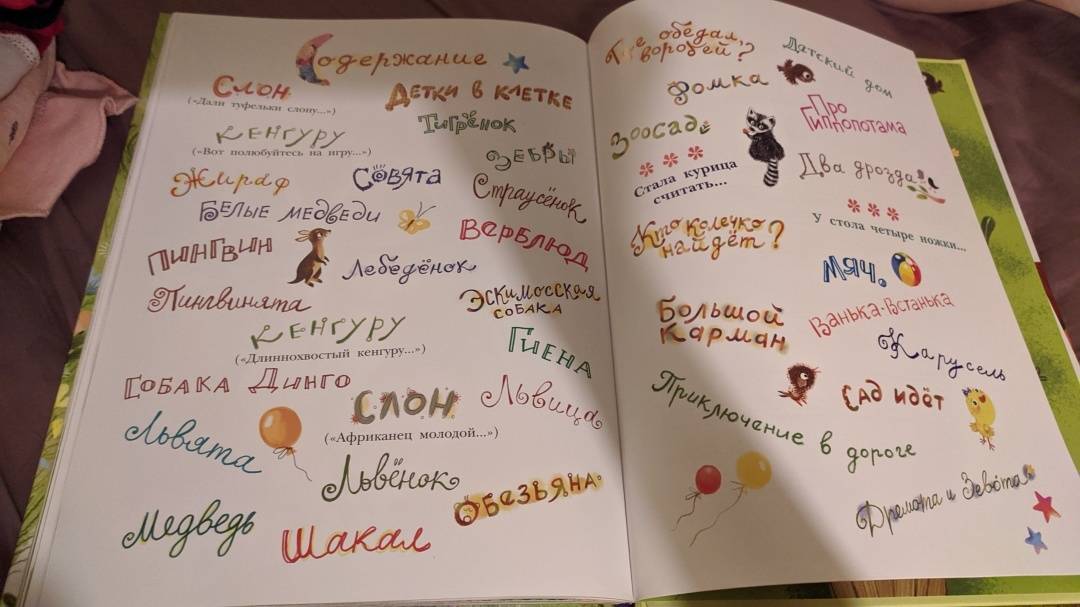 Содержание
Слон
(«Дали туфельки слону...»)
Детки в клетке
Кенгуру
(«Вот полюбуйтесь на игру...»)
Тигрёнок
Зебры
Жираф
Совята
Страусёнок
Белые медведи
Пингвин
Верблюд
Лебедёнок
Пингвинята
Эскимосская
собака
Кенгуру
(«Длиннохвостый кенгуру...»)
Гиена
Собака Динго
Слон
(«Африканец молодой...»)
Львица
Львята
Львёнок
Обезьяна
Медведь
Шакал
Где обедал,
воробей?
Детский дом
Фомка
Про
Гиппопотама
Зоосад
* * *
Стала курица
считать...
Два дрозда
* * *
У стола четыре ножки...
Кто колечко
найдёт?
Мяч
Большой
карман
Ванька-Встанька
Карусель
Приключение в дороге
Сад идёт
Дремота и Зевота